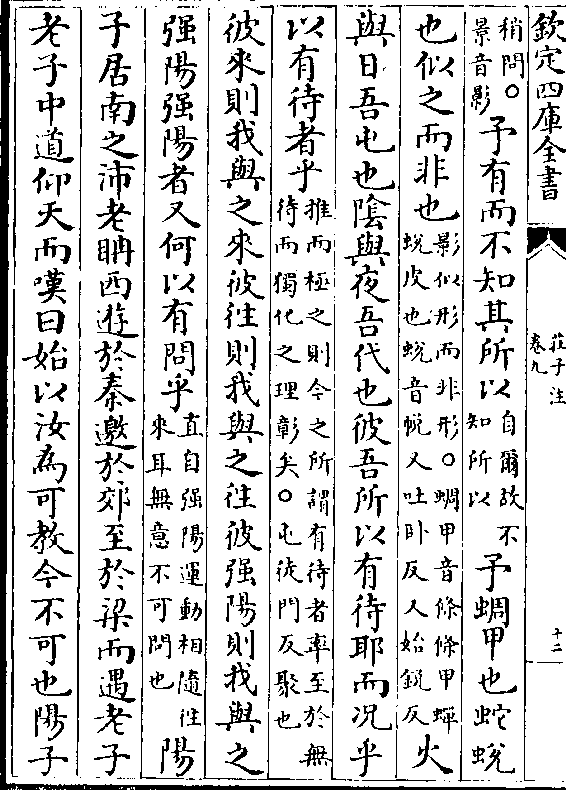 欽定四庫全書
莊子注
卷九
十二
稍問○
景音影
予有而不知其所以
自爾故不
知所以
予蜩甲也蛇蛻
也似之而非也
影似形而非形○蜩甲音條條甲蟬
蛻皮也蛻音帨又吐卧反又始銳反
火
與日吾屯也隂與夜吾代也彼吾所以有待耶而况乎
以有待者乎
推而極之則今之所謂有待者率至於無
待而獨化之理彰矣○屯徒門反聚也
彼來則我與之來彼往則我與之往彼强陽則我與之
强陽强陽者又何以有問乎
直自强陽運動相隨往
來耳無意不可問也
陽
子居南之沛老聃西遊於秦邀於郊至於梁而遇老子
老子中道仰天而嘆曰始以汝為可教今不可也陽子